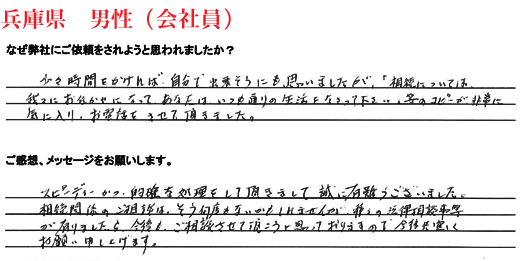 兵庫県　男性（会社員）
なぜ弊社にご依頼をされようと思われましたか？
少々時間をかければ自分で出来そうにも思いましたが、「相続については、
我々にお任せになって、あなたはいつも通りの生活をなさって下さい」等のコピーが非常に
気に入り、お電話をさせて頂きました。
ご感想、メッセージをお願いします。
スピーディーかつ的確な処理をして頂きまして誠に有難うございました。
相続関係のご相談は、そう何度もないかもしれませんが、種々の法律相談事等
が有りましたら、今後も、ご相談させて頂こうと思っておりますので今後共宜しく
お願い申し上げます。